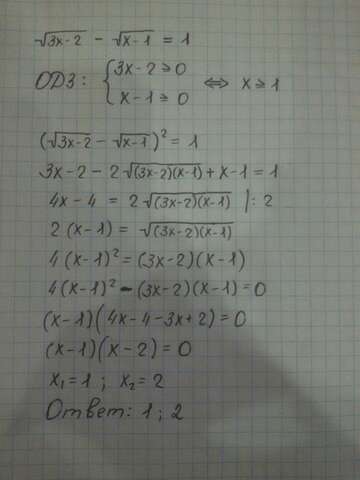 √3x-2 - √x-1 = 1
ОДЗ: { 3x-2≥0
x-1≥0 ⇔ x≥1
(√3x-2 - √x-1)² = 1
3x-2-2√(3x-2)(x-1) + x-1 = 1
4x-4 = 2√(3x-2)(x-1) |:2
2(x-1) = √(3x-2)(x-1)
4(x-1)² = (3x-2)(x-1)
4(x-1)² - (3x-2)(x-1) = 0
(x-1)(4x-4-3x+2) = 0
(x-1)(x-2) = 0
x₁=1; x₂=2
Ответ: 1; 2